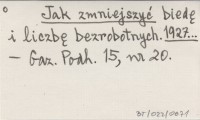 ° Jak zmniejszyć biedę
i liczbę bezrobotnych. 1927...
— Gaz. Podh. 15, nr 20.
BT/023/0071